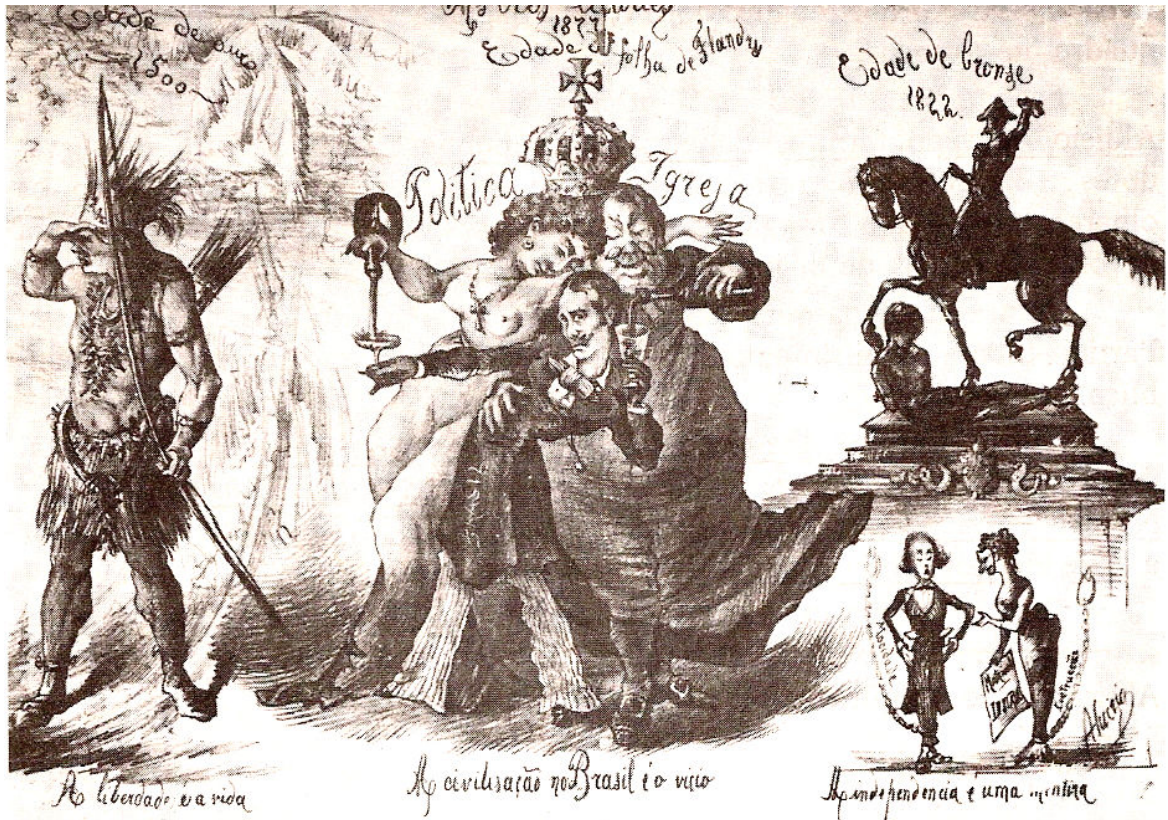 Edade de ouro
1500
As tres
1877
Edade de folha de Flandres
Edade de bronze
1822.
Politica
Igreja
A liberdade é a vida
A civilisação no Brasil é o vicio
A independencia é uma mentira